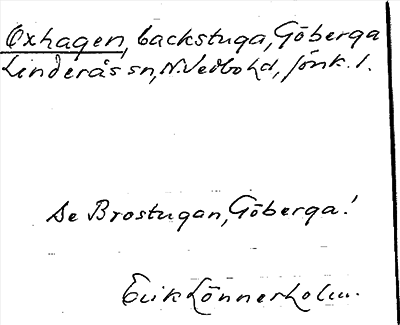 Oxhagen, backstuga, Göberga
Linderås sn, N. Vedbo hd, Jönk. l.
Se Brostugan, Göberga!
Erik Lönnerholm.